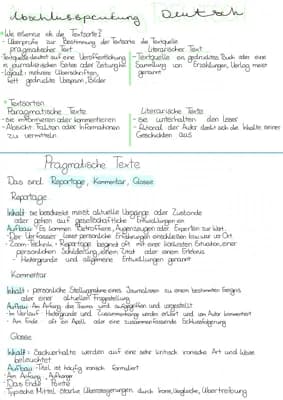 Abschlussprüfung Deutsch
Wie erkenne ich die Textsorte?
- Überprüfe zur Bestimmung der Textsorte die Textquelle
pragmatischer Text
Literarischer Text
- Textquelle deutet auf eine Veröffentlichung in journalistischen Seiten oder Zeitung hin
- Textquelle ein gedrucktes Buch oder eine Sammlung von Erzählungen, Verlag meist genannt
- Layout: mehrere Überschriften, fett gedruckte Untertitel, Bilder
Textsorten
Pragmatische Texte
Literarische Texte
- sie informieren oder kommentieren
- sie unterhalten den Leser
- Absicht: Fakten oder Informationen zu vermitteln
- der Autor denkt sich die Inhalte seiner Geschichten aus
Pragmatische Texte
Das sind: Reportage, Kommentar, Glosse
Reportage
Inhalt: sie beschreibt meist aktuelle Vorgänge oder Zustände
oder gehen auf gesellschaftliche Entwicklungen ein
Aufbau: Es kommen Betroffene, Augenzeugen oder Experten zur Wort
- Der Verfasser lässt persönliche Erfahrungen einfließen, war vor Ort
- Zoom-Technik: Reportage beginnt mit einer konkreten Situation, einer
persönlichen Schilderung, einem Zitat oder einem Erlebnis
- Hintergründe und allgemeine Entwicklungen genannt
Kommentar
Inhalt: persönliche Stellungnahme eines Journalisten zu einem bestimmten Ereignis
oder einer aktuellen Fragestellung
Aufbau: Am Anfang das Thema wird aufgegriffen und vorgestellt
- Im Verlauf Hintergründe und Zusammenhang werden erklärt und vom Autor kommentiert
- Am Ende oft ein Apell oder eine zusammenfassende Schlussfolgerung
Glosse
Inhalt: Sachverhalte werden auf eine sehr kritisch ironische Art und Weise
beleuchtet
Aufbau: Titel ist häufig ironisch formuliert
- Am Anfang: Aufhänger
- Das Ende: Pointe
- Typische Mittel: starke Übersteuerungen durch Ironie, Vergleiche, Übertreibung